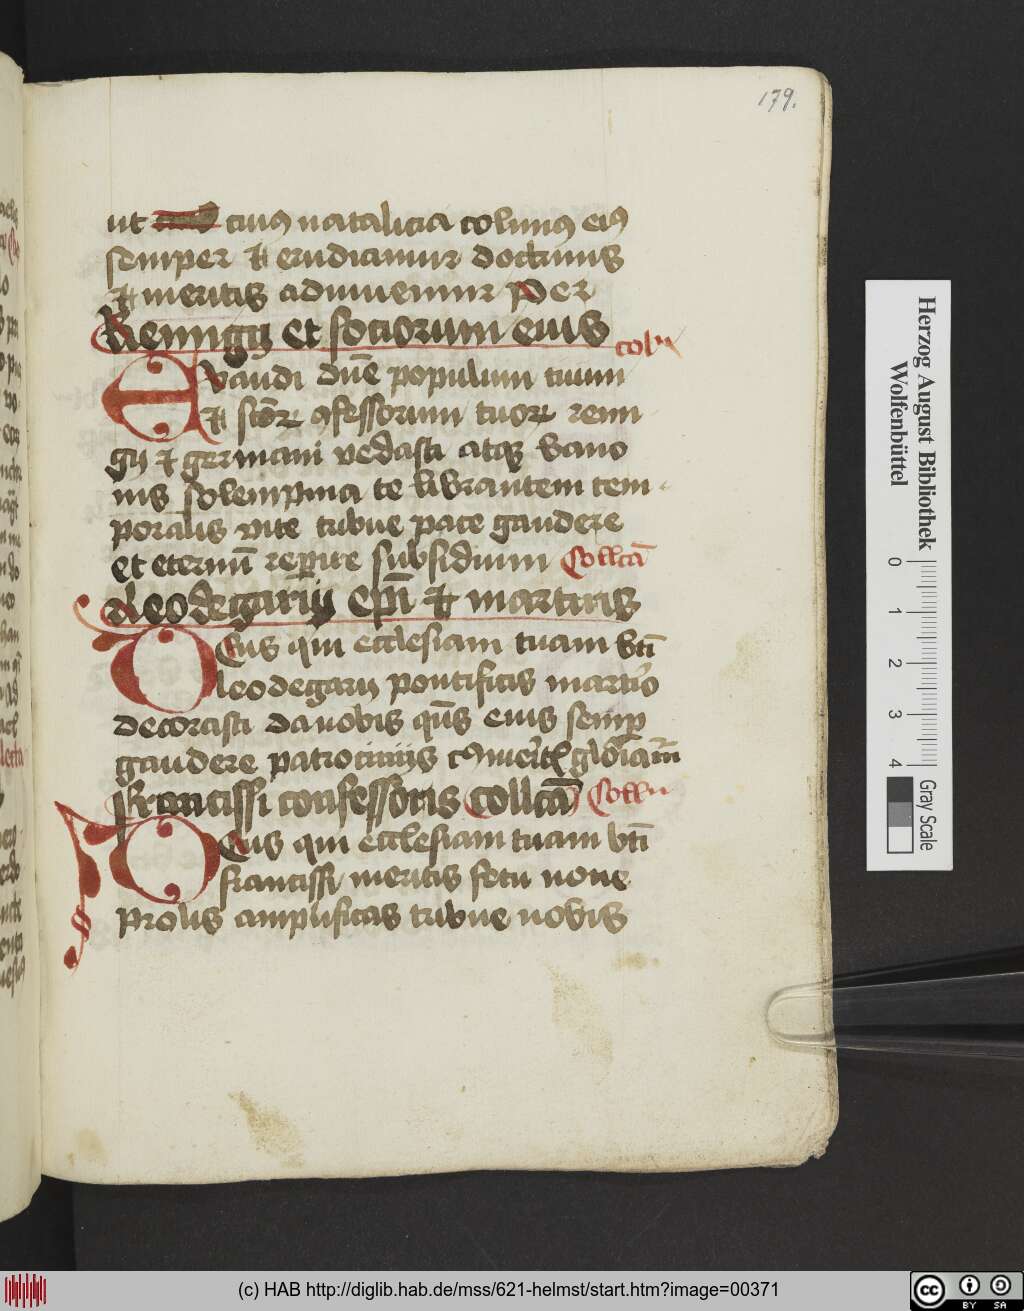 179.
ut cuiꝯ natalicia colimꝯ eiꝯ
semper et erudiamur doctrinis
et meritis adiuuemur per
Remigij et sociorum eius
colla
Exaudi dn̄e populum tuum
et sc̄oꝝ ꝯfessorum tuoꝝ remi
gij et germani vedasti atqꝫ bauo
nis solempnia te librantem tem
poralis vite tribue pace gaudere
et eternū reꝑire subsidium Collcā
Leodegarij ep̄i et martiris
Deus qui ecclesiam tuam bt̄i
leodegarij pontificis martirio
decorasti da nobis qs̄ eius semꝑ
gaudere patrocinijs
Francissi confessoris Collcā
Deus qui ecclesiam tuam bt̄i
francissi meritis fetu noue
prolis amplificas tribue nobis
Herzog August Bibliothek
Wolfenbüttel
0 1 2 3 4
Gray Scale
(c) HAB http://diglib.hab.de/mss/621-helmst/start.htm?image=00371
cc BY SA